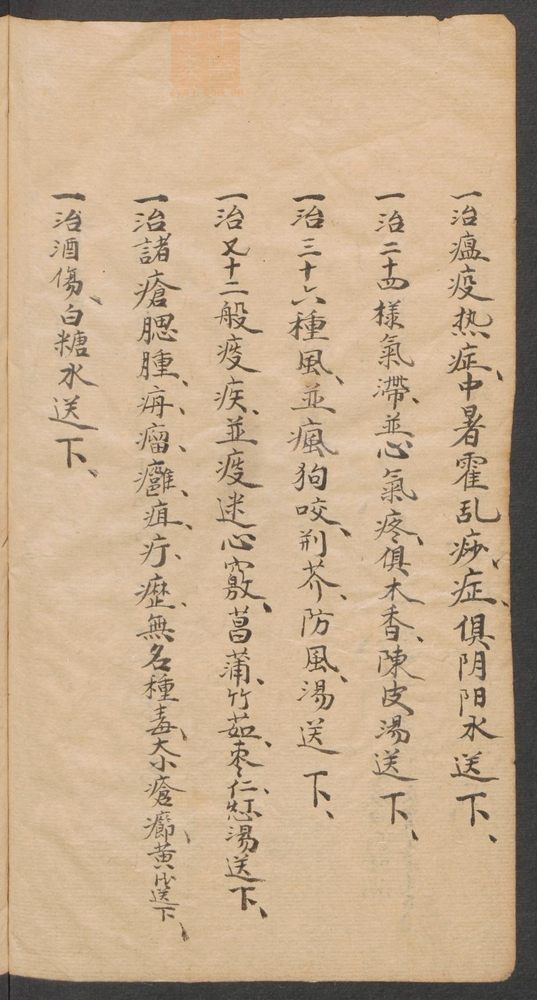 一治瘟疫热症、中暑霍乱痧症、俱阴阳水送下、
一治二十四樣氣滯、並心氣疼、俱木香、陳皮湯送下、
一治三十六種風、並瘋狗咬、荆芥、防風湯送下、
一治又十二般疫疾、並疫迷心竅、菖蒲、竹茹、棗仁、湯送下、
一治諸瘡腮腫、痗、瘤、癰、疽、疔、瀝、無名種毒、大小瘡癤、黄送下、
一治酒傷、白糖水送下、